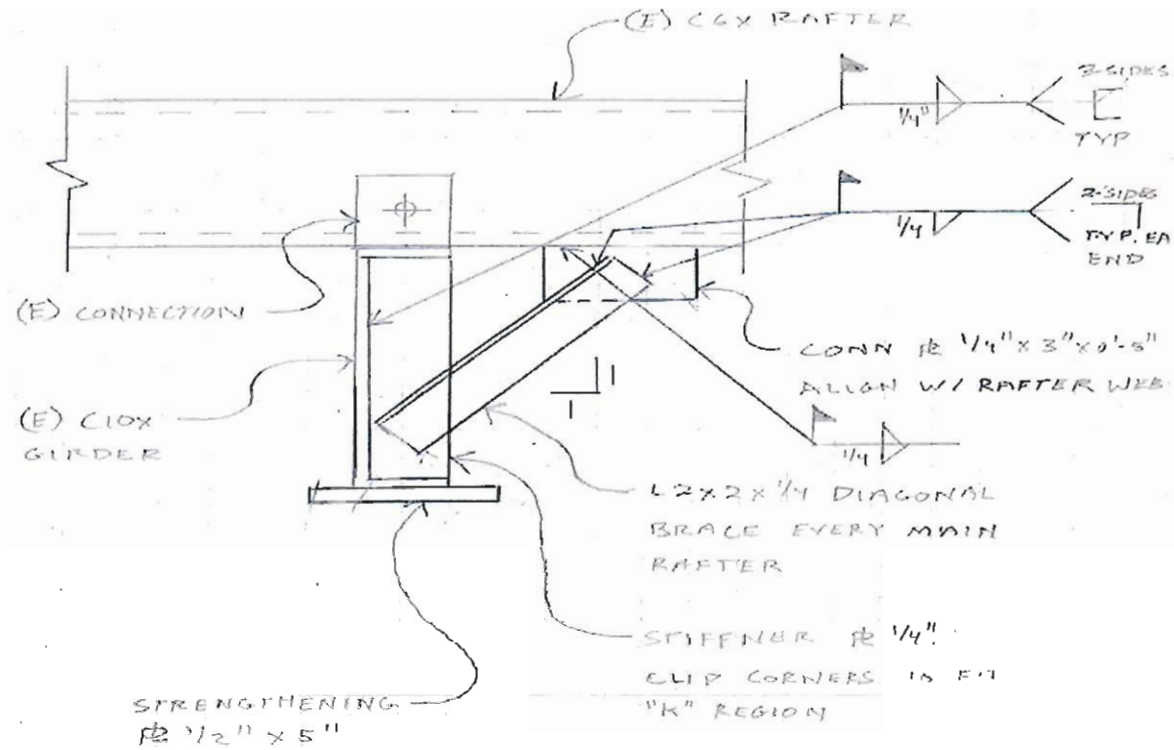 (E) C6X RAFTER
3-SIDES
1/4"
TYP
2-SIDES
1/4
TYP. EA
END
(E) CONNECTION
CONN ⅊ 1/4" X 3" X 0'-5"
ALIGN W/ RAFTER WEB
(E) C10X
GIRDER
1
1
1/4
L2X2X1/4 DIAGONAL
BRACE EVERY MAIN
RAFTER
STIFFNER ⅊ 1/4"
CLIP CORNERS TO FIT
"K" REGION
STRENGTHENING
⅊ 1/2" X 5"